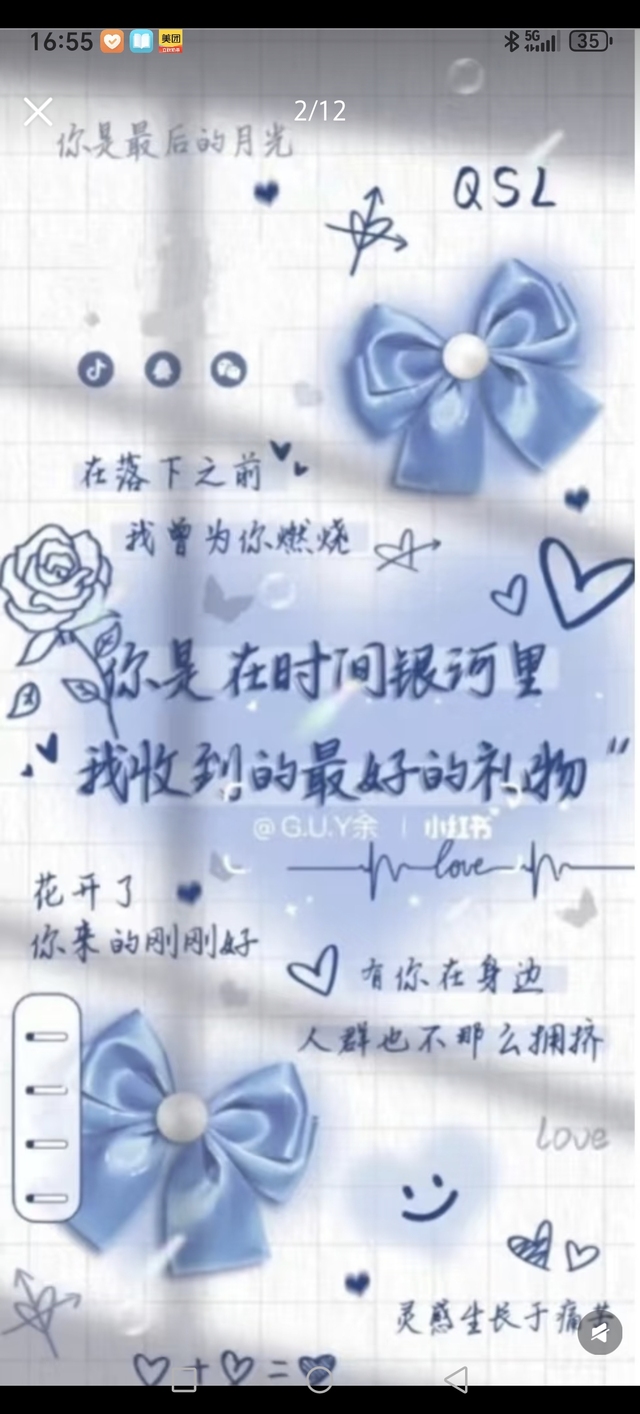 16:55 美团 5G 35
2/12
你是最后的月光
QSL
在落下之前
我曾为你燃烧
你是在时间银河里
我收到的最好的礼物"
@G.U.Y余 | 小红书
love
花开了
你来的刚刚好
有你在身边
人群也不那么拥挤
love
灵感生长于痛苦
+ =